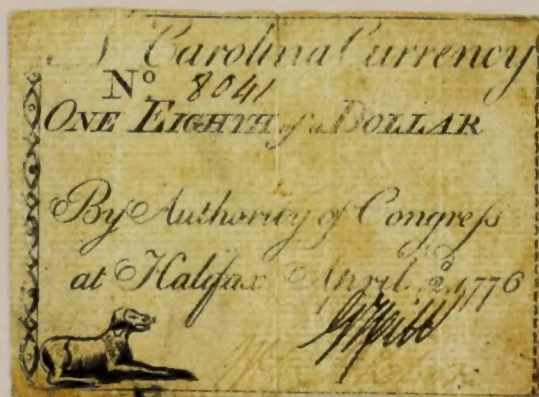 N Carolina Currency
No. 8041
ONE EIGHTH of a DOLLAR
By Authority of Congreſs
at Halifax April 2d. 1776